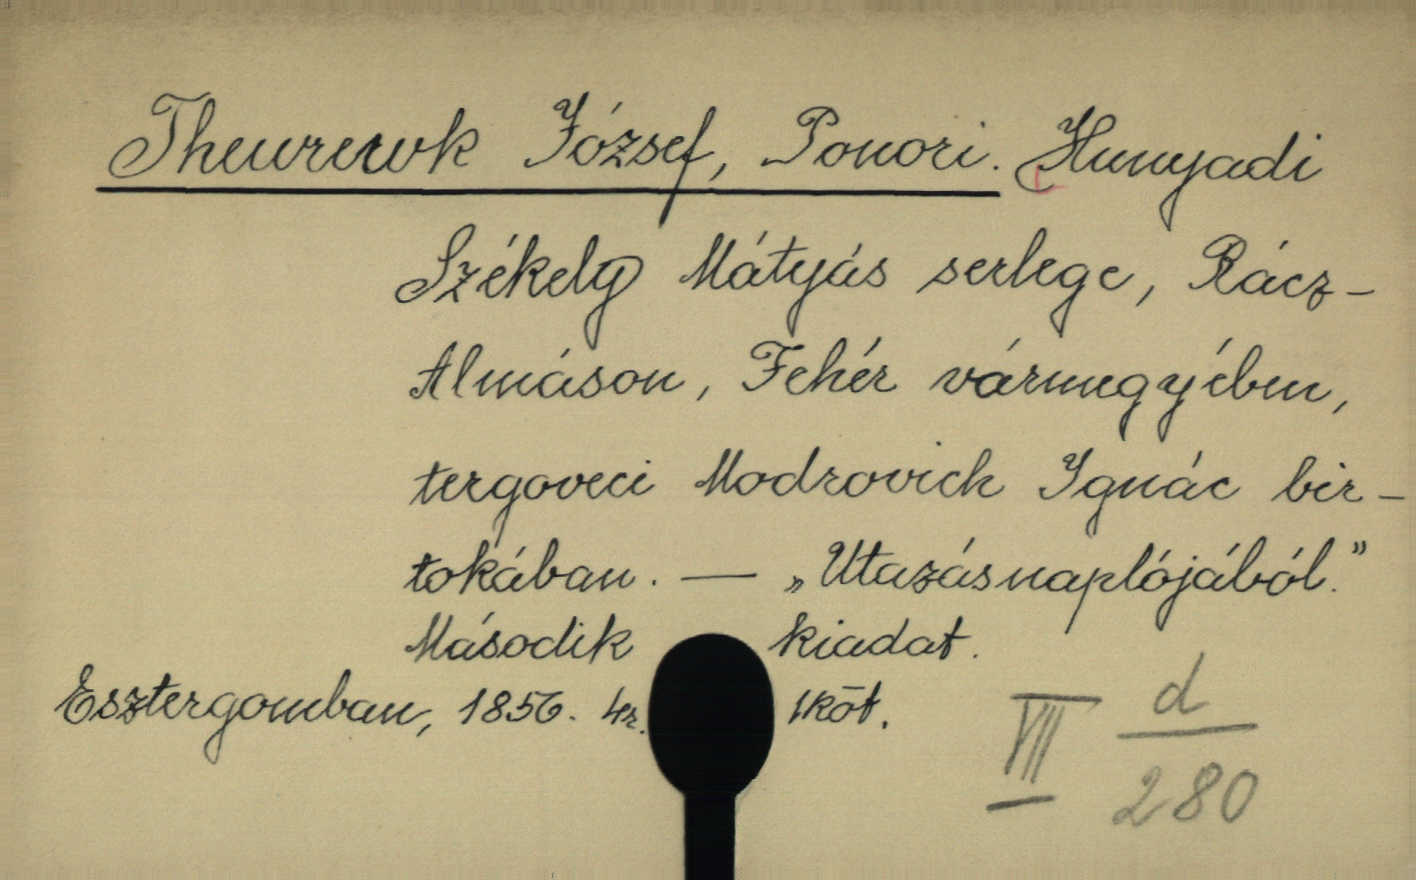 Theurewk József, Ponori. Hunyadi
Székely Mátyás serlege, Rácz-
Almáson, Fehér vármegyében,
tergoveci Modrovich Ignác bir-
tokában. — „Utazásnaplójából."
Második kiadat.
Esztergomban, 1856. 4r. 1köt.
VII d/280